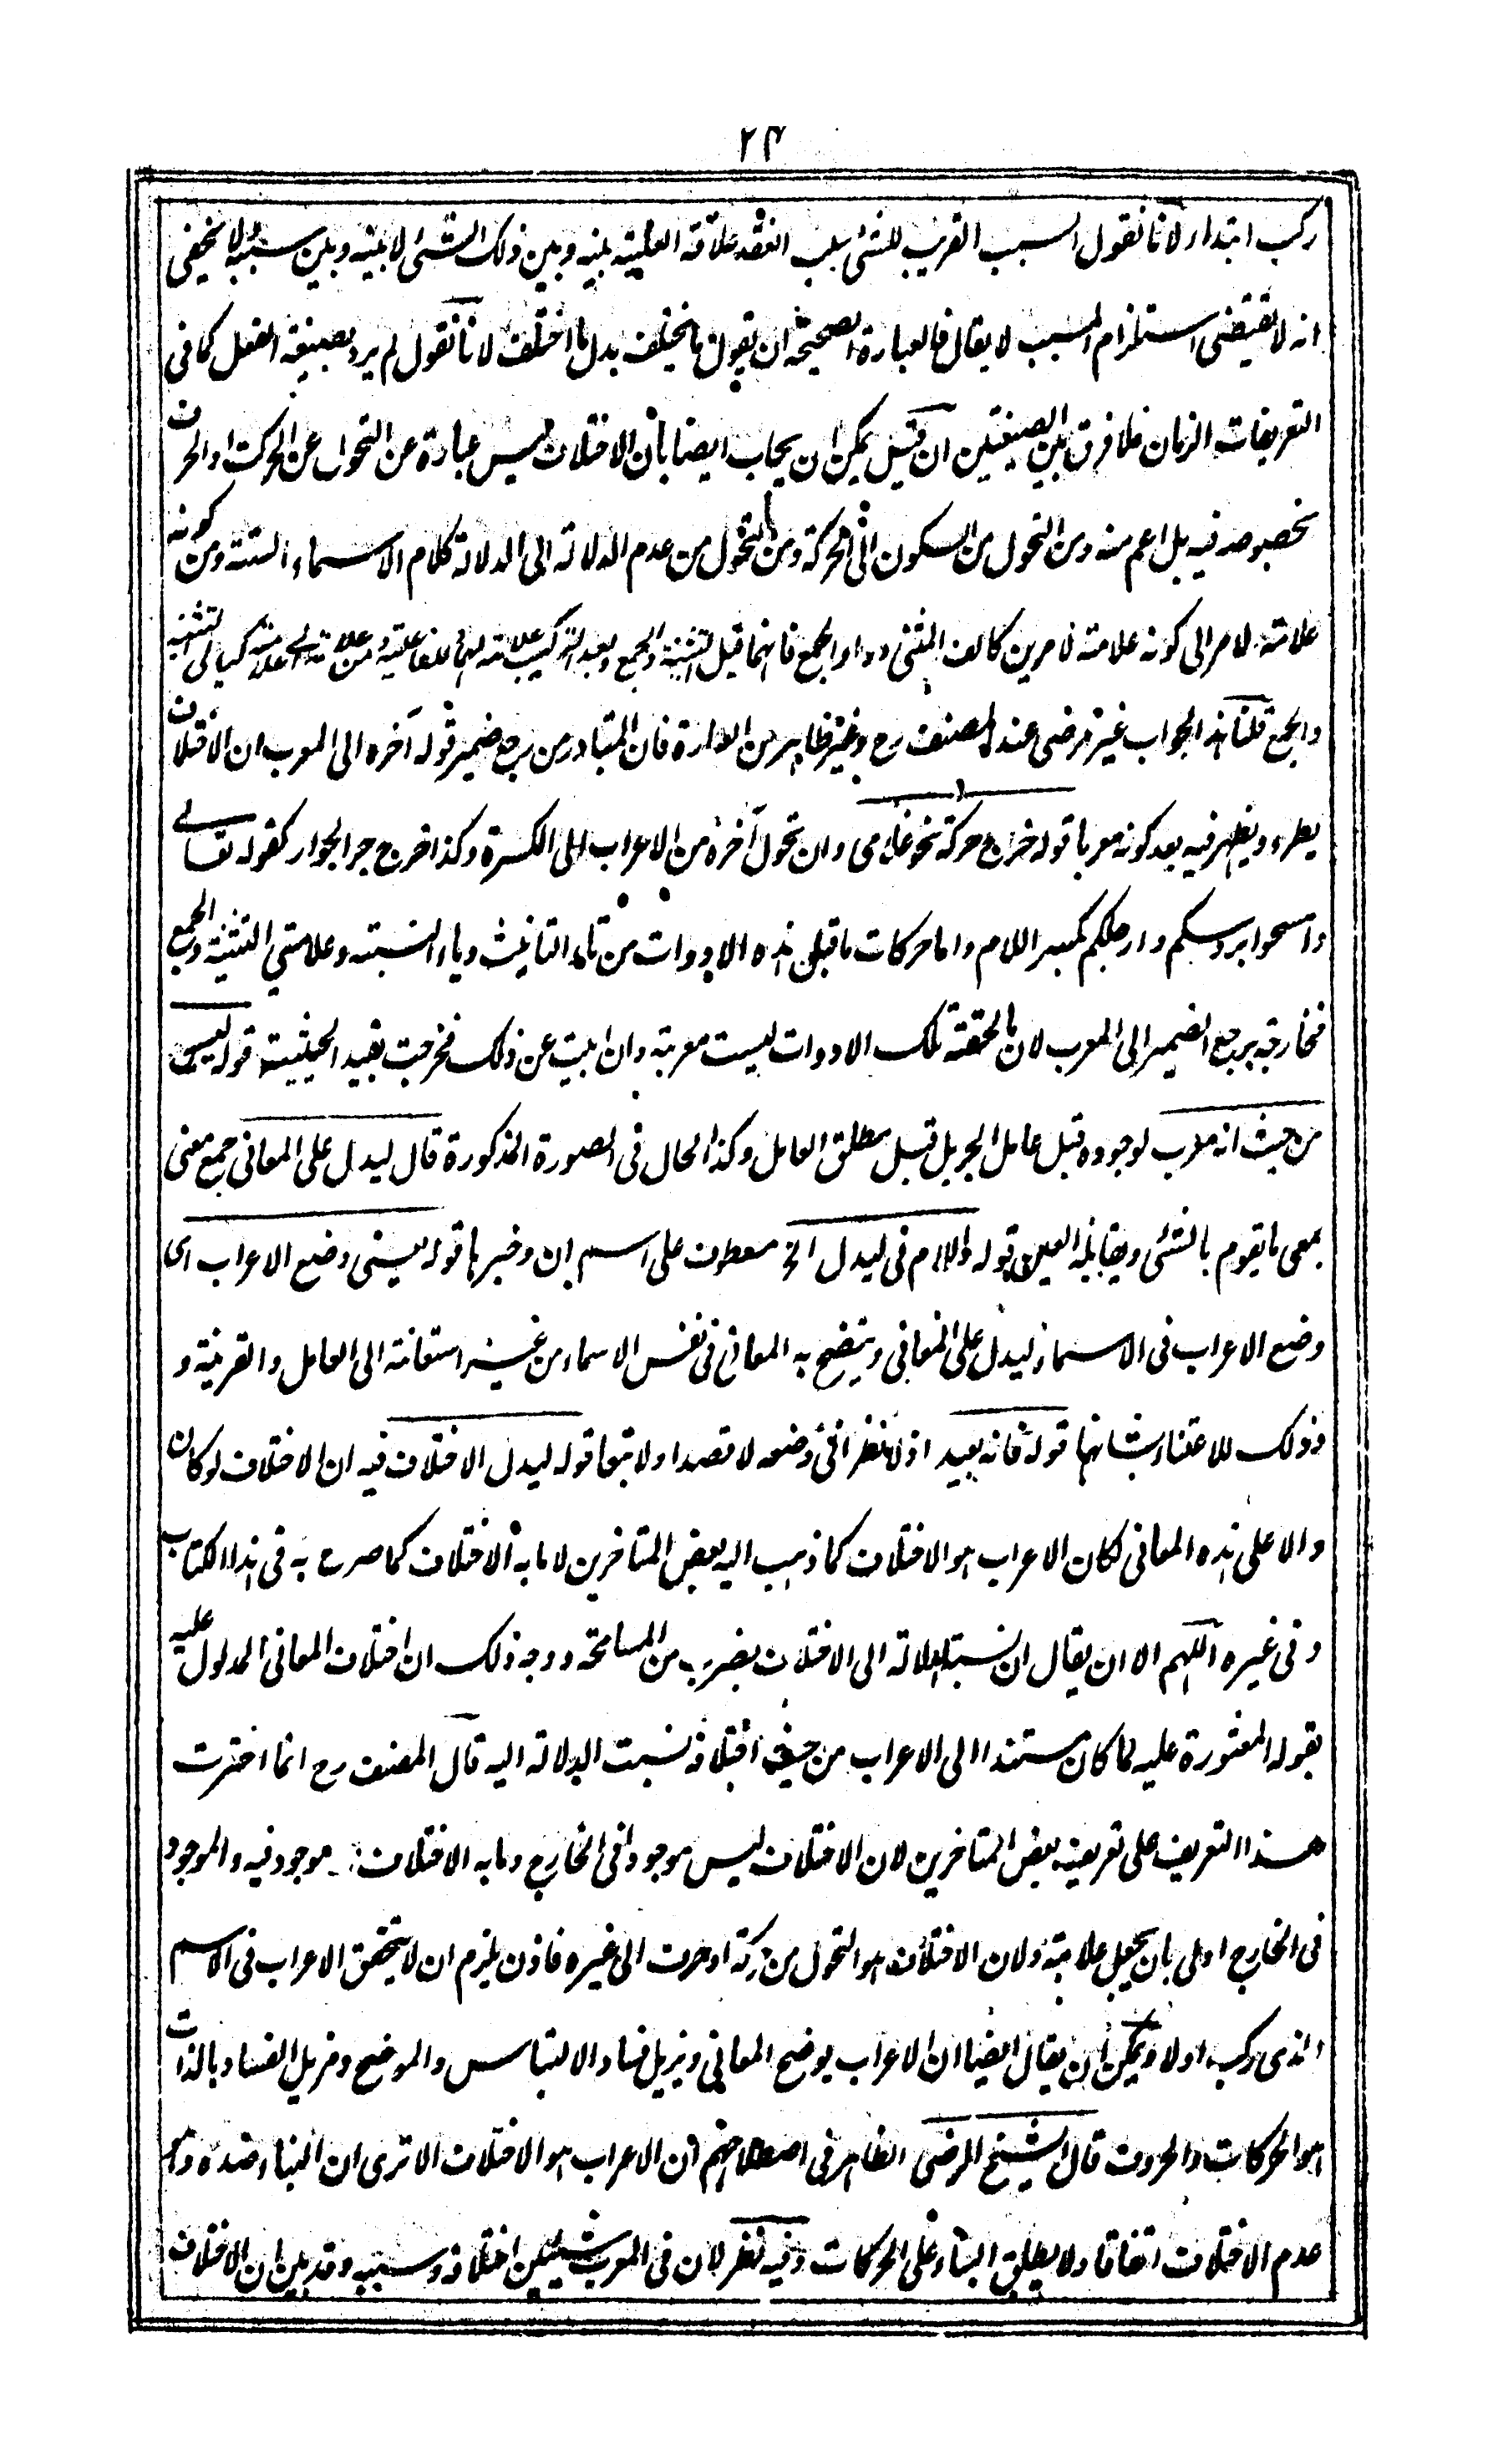 ٢٤
ركب ابتداء لانا نقول السبب القريب للشئ سبب انعقد علاقة العلية بينه وبين ذلك الشئ لا بينه وبين سببه لا يخفى
انه لا يقتضى استلزام المسبب لا يقال فالعبارة الصحيحة ان يقول ما يختلف بدل ما اختلف لانا نقول لم يرد بصيغة الفعل كما فى
التعريفات الزمان فلا فرق بين الصيغتين ان قيل يمكن ان يجاب ايضا بأن الاختلاف ليس عبارة عن التحول عن الحركة او الحرف
بخصوصه فيه بل اعم منه ومن التحول من السكون الى الحركة ومن التحول من عدم الدلالة الى الدلالة كلام الاسماء الستة ومن كونه
علامة لامر الى كونه علامة لامرين كالف المثنى وواو الجمع فانهما قبل التثنية والجمع وبعد التركيب علامة لهما وللفاعلية ومن علامة الى علامة كيائى التثنية
والجمع قلنا هذا الجواب غير مرضى عند المصنف رح وغير ظاهر من العبارة فان المتبادر من رجع ضمير قوله آخره الى المعرب ان الاختلاف
يطرء ويظهر فيه بعد كونه معربا قوله خرج حركة نحو غلامى وان تحول آخره من الاعراب الى الكسرة وكذا خرج جر الجوار كقوله تعالى
وامسحوا برؤسكم وارجلكم بكسر اللام واما حركات ما قبل هذه الادوات من تاء التانيث وياء النسبة وعلامتي التثنية والجمع
فخارجة برجع الضمير الى المعرب لان ما لحقته تلك الادوات ليست معربة وان ابيت عن ذلك فخرجت بقيد الحيثية قوله ليس
من حيث انه معرب لوجوده قبل عامل الجر بل قبل مطلق العامل وكذا الحال فى الصورة المذكورة قال ليدل على المعانى جمع معنى
بمعى ما يقوم بالشئ ويقابله العين قوله واللام فى ليدل الخ معطوف على اسم ان وخبرها قوله يعنى وضع الاعراب اى
وضع الاعراب فى الاسماء ليدل على المعانى ويتضح به المعانى فى نفس الاسماء من غير استعانة الى العامل والقرينة و
وذلك للاعتناء بشانها قوله فانه بعيد اذ لا نظر فى وضعه لا قصدا ولا تبعا قوله ليدل الاختلاف فيه ان الاختلاف لو كان
والا على هذه المعانى لكان الاعراب هو الاختلاف كما ذهب اليه بعض المتاخرين لا ما به الاختلاف كما صرح به فى هذا الكتاب
وفى غيره اللهم الا ان يقال ان نسبة الدلالة الى الاختلاف بضرب من المسامحة ووجه ذلك ان اختلاف المعانى المدلول عليه
بقوله المعتورة عليه لما كان مستندا الى الاعراب من حيث اختلافه نسبت الدلالة اليه قال المصنف رح انما اخترت
هذا التعريف على تعريف بعض المتاخرين لان الاختلاف ليس موجودا فى الخارج وما به الاختلاف موجود فيه والموجود
فى الخارج اولى بان يجعل علامة ولان الاختلاف هو التحول من حركة او حرف الى غيره فاذن يلزم ان لا يتحقق الاعراب فى الاسم
الذى ركب اولا ويمكن ان يقال ايضا ان الاعراب يوضح المعانى ويزيل فساد الالتباس والموضح ومزيل الفساد بالذات
هو الحركات والحروف قال الشيخ الرضى الظاهر فى اصطلاحهم ان الاعراب هو الاختلاف الا ترى ان البناء ضده وهو
عدم الاختلاف اتفاقا ولا يطلق البناء على الحركات وفيه نظر لان فى المعرب شيئين اختلافه وسببه وقد بين ان الاختلاف